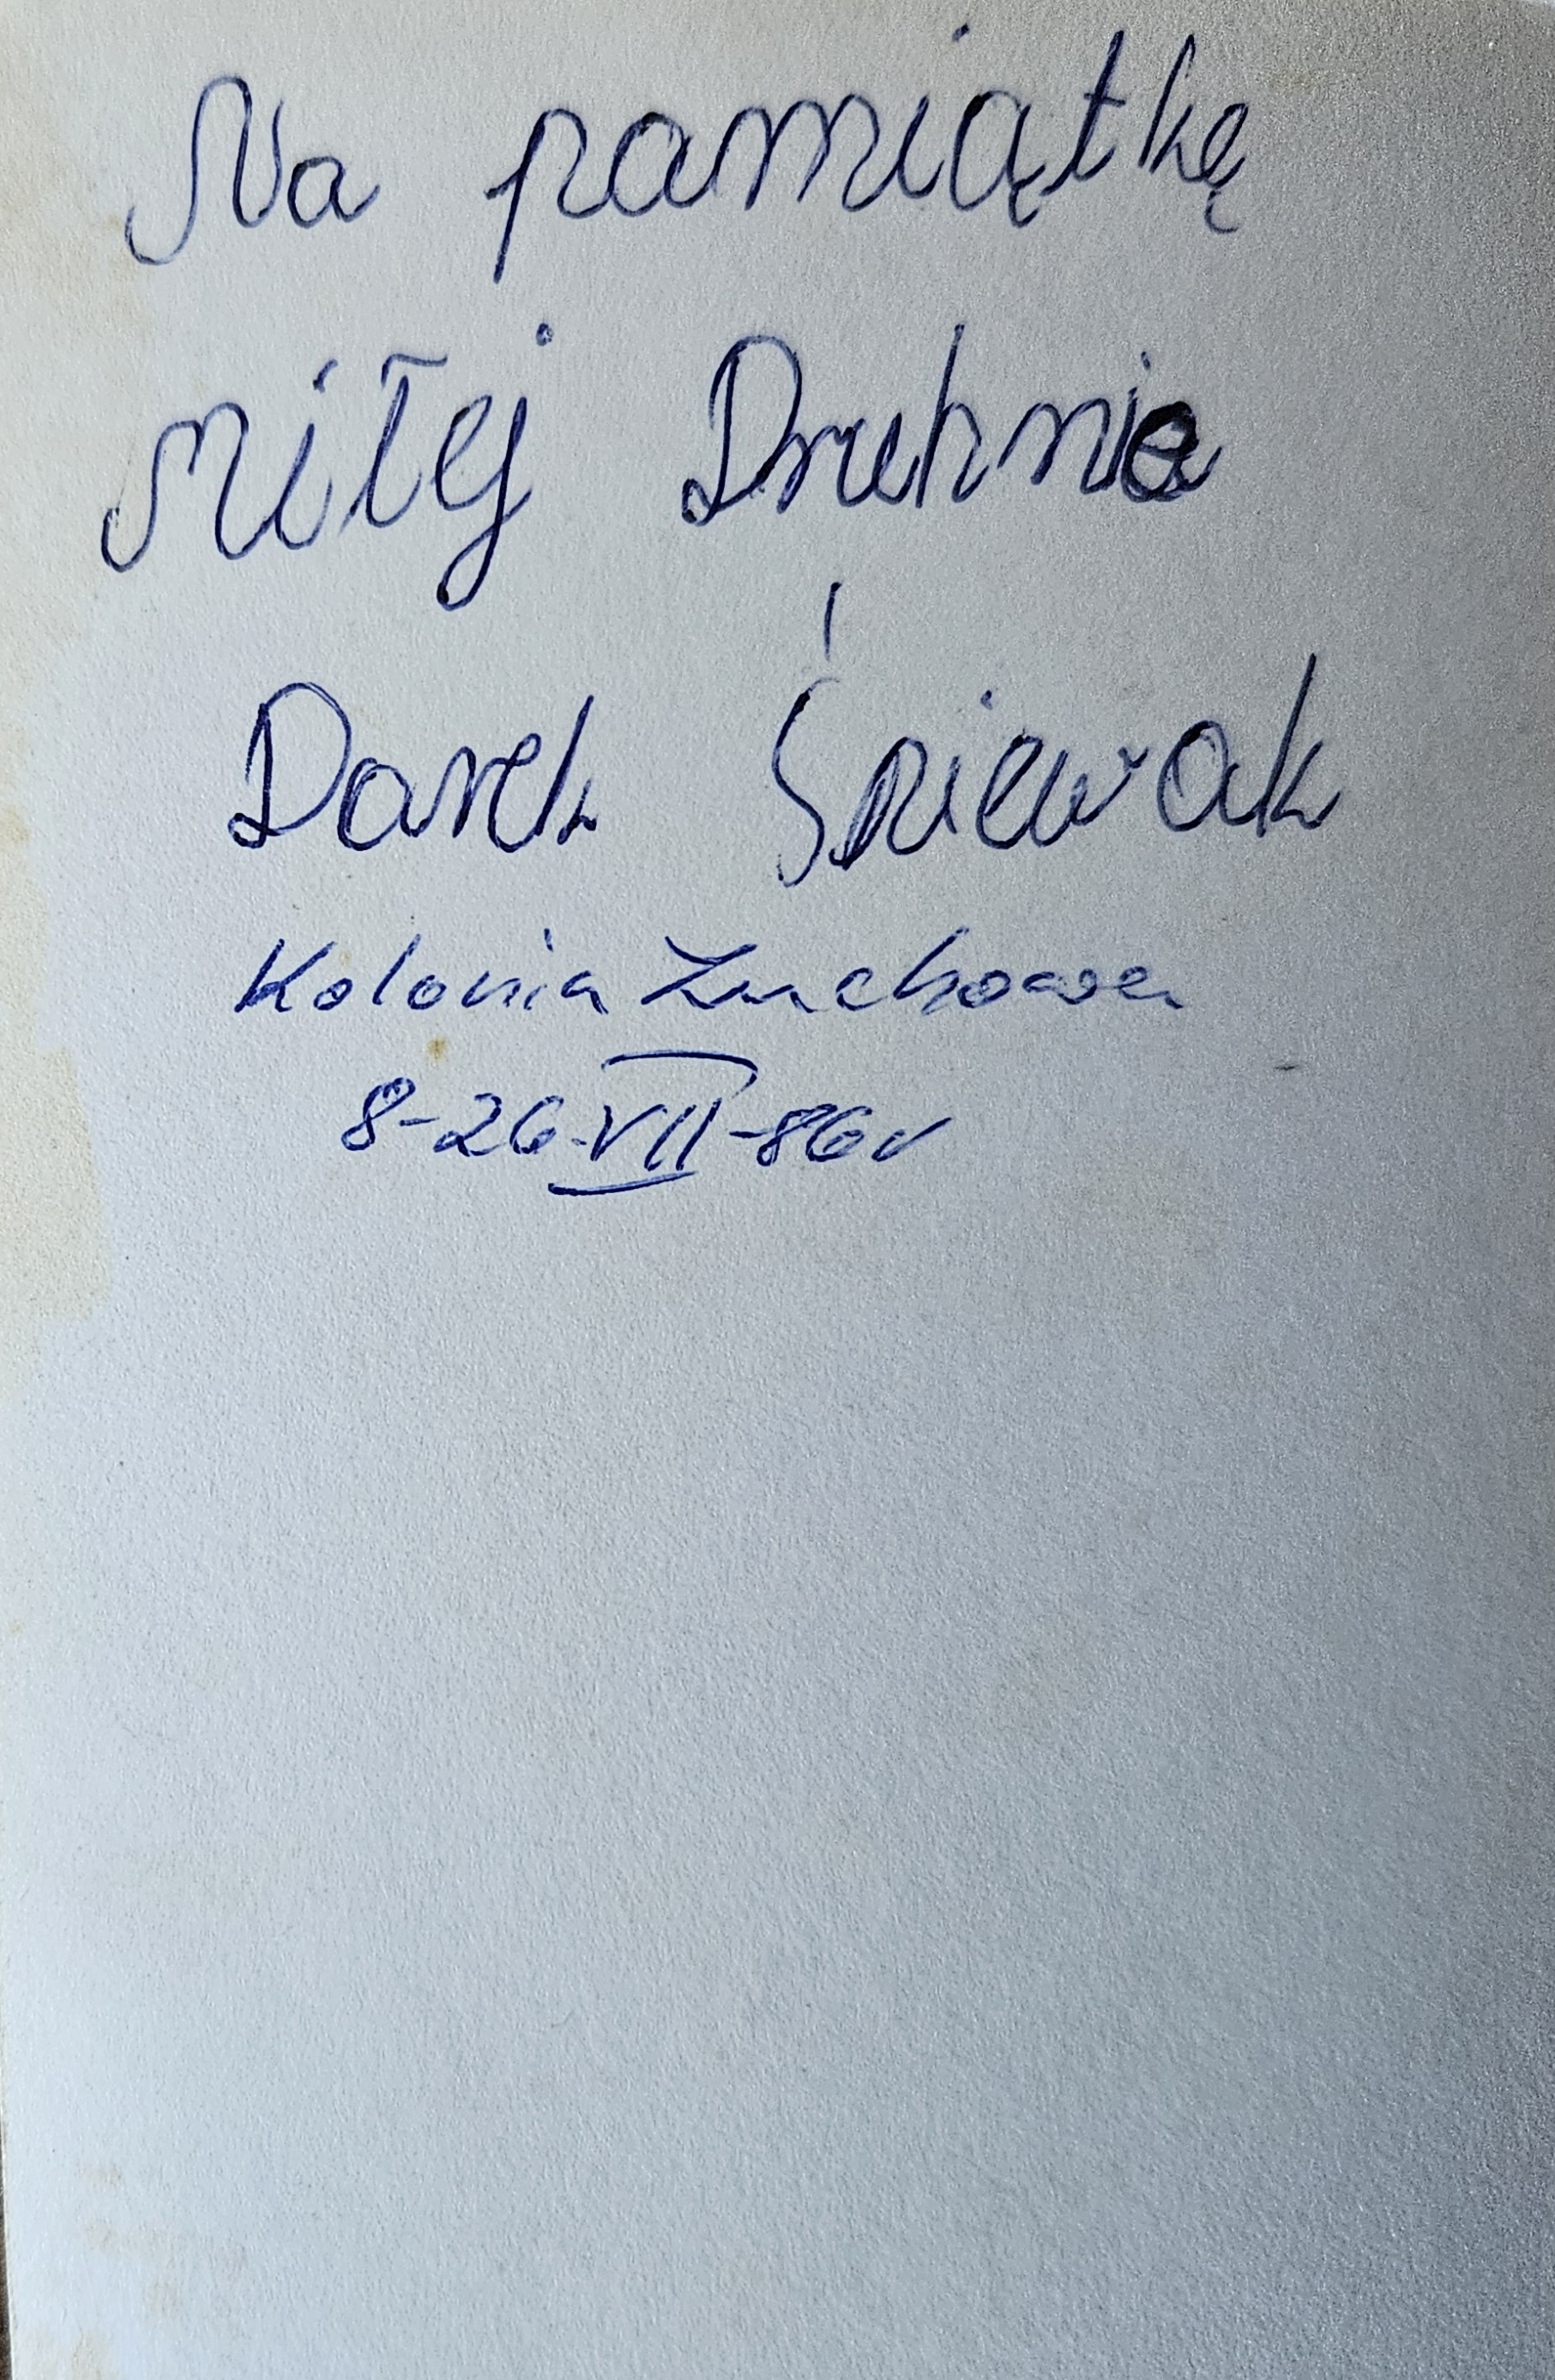 Na pamiątkę
miłej Druhnie
Darek Śpiewak
Kolonia Zuchowa
8-26-VII-86r